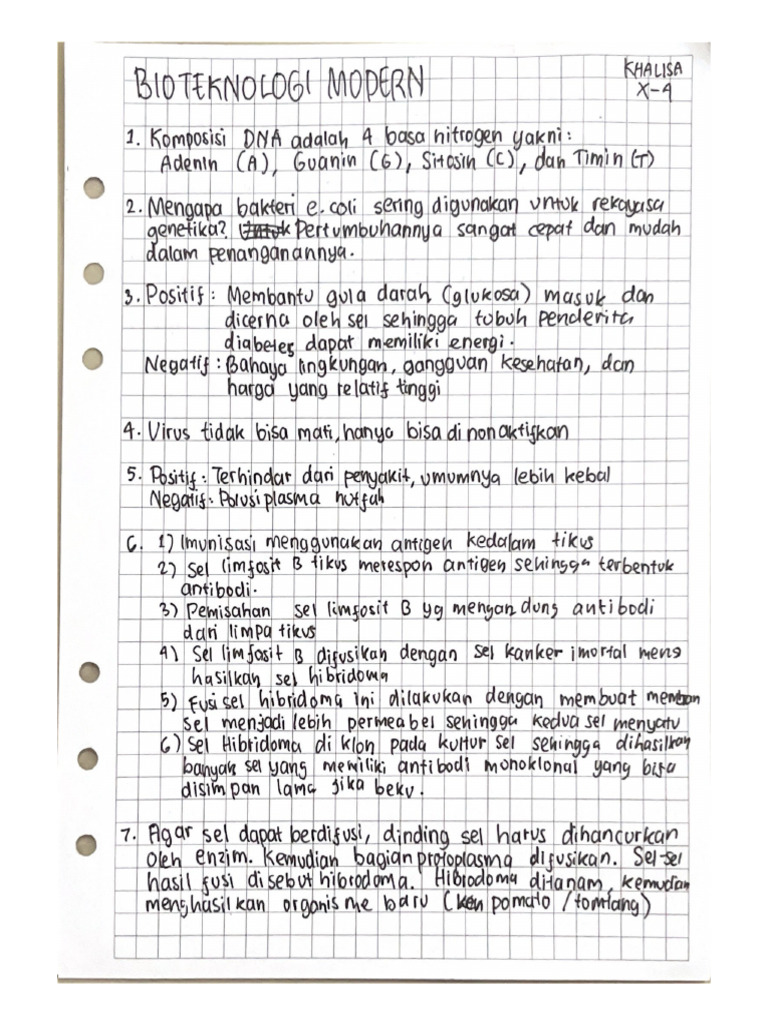 BIOTEKNOLOGI MODERN
KHALISA
X-4
1. Komposisi DNA adalah 4 basa nitrogen yakni:
Adenin (A), Guanin (G), Sitosin (C), dan Timin (T)
2. Mengapa bakteri e.coli sering digunakan untuk rekayasa
genetika? Pertumbuhannya sangat cepat dan mudah
dalam penanganannya.
3. Positif: Membantu gula darah (glukosa) masuk dan
dicerna oleh sel sehingga tubuh penderita
diabetes dapat memiliki energi.
Negatif: Bahaya lingkungan, gangguan kesehatan, dan
harga yang relatif tinggi
4. Virus tidak bisa mati, hanya bisa di nonaktifkan
5. Positif: Terhindar dari penyakit, umumnya lebih kebal
Negatif: Polusi plasma nutfah
6. 1) Imunisasi menggunakan antigen kedalam tikus
2) Sel limfosit B tikus merespon antigen sehingga terbentuk
antibodi.
3) Pemisahan sel limfosit B yg mengandung antibodi
dari limpa tikus
4) Sel limfosit B difusikan dengan sel kanker imortal meng
hasilkan sel hibridoma
5) Fusi sel hibridoma ini dilakukan dengan membuat membran
sel menjadi lebih permeabel sehingga kedua sel menyatu
6) Sel Hibridoma di klon pada kultur sel sehingga dihasilkan
banyak sel yang memiliki antibodi monoklonal yang bisa
disimpan lama jika beku.
7. Agar sel dapat berdifusi, dinding sel harus dihancurkan
oleh enzim. Kemudian bagian protoplasma difusikan. Sel-sel
hasil fusi disebut hibrodoma. Hibrodoma ditanam, kemudian
menghasilkan organisme baru (pomato / tomtang)